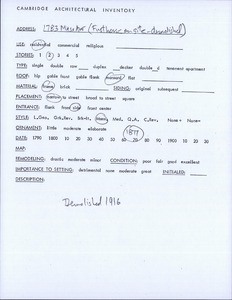 CAMBRIDGE ARCHITECTURAL INVENTORY
ADDRESS: 1783 Mass Ave (Furthest on site - demolished)
USE: residential commercial religious
STORIES: 1 2 3 4 5
TYPE: single double row duplex decker double d. tenement apartment
ROOF: hip gable front gable flank mansard flat
MATERIAL: frame brick SIDING: original subsequent
PLACEMENT: narrow to street broad to street square
ENTRANCE: front side front center
STYLE: L.Geo. Grk.Rev. Ital. Mans. Med. Q.A. C.Rev. None
ORNAMENT: little moderate elaborate
1877
DATE: 1790 1800 10 20 30 40 50 60 70 80 90 1900 10 20 30
MAP:
REMODELING: drastic moderate minor CONDITION: poor fair good excellent
IMPORTANCE TO SETTING: detrimental none moderate great INITIALED:
DESCRIPTION:
Demolished 1916